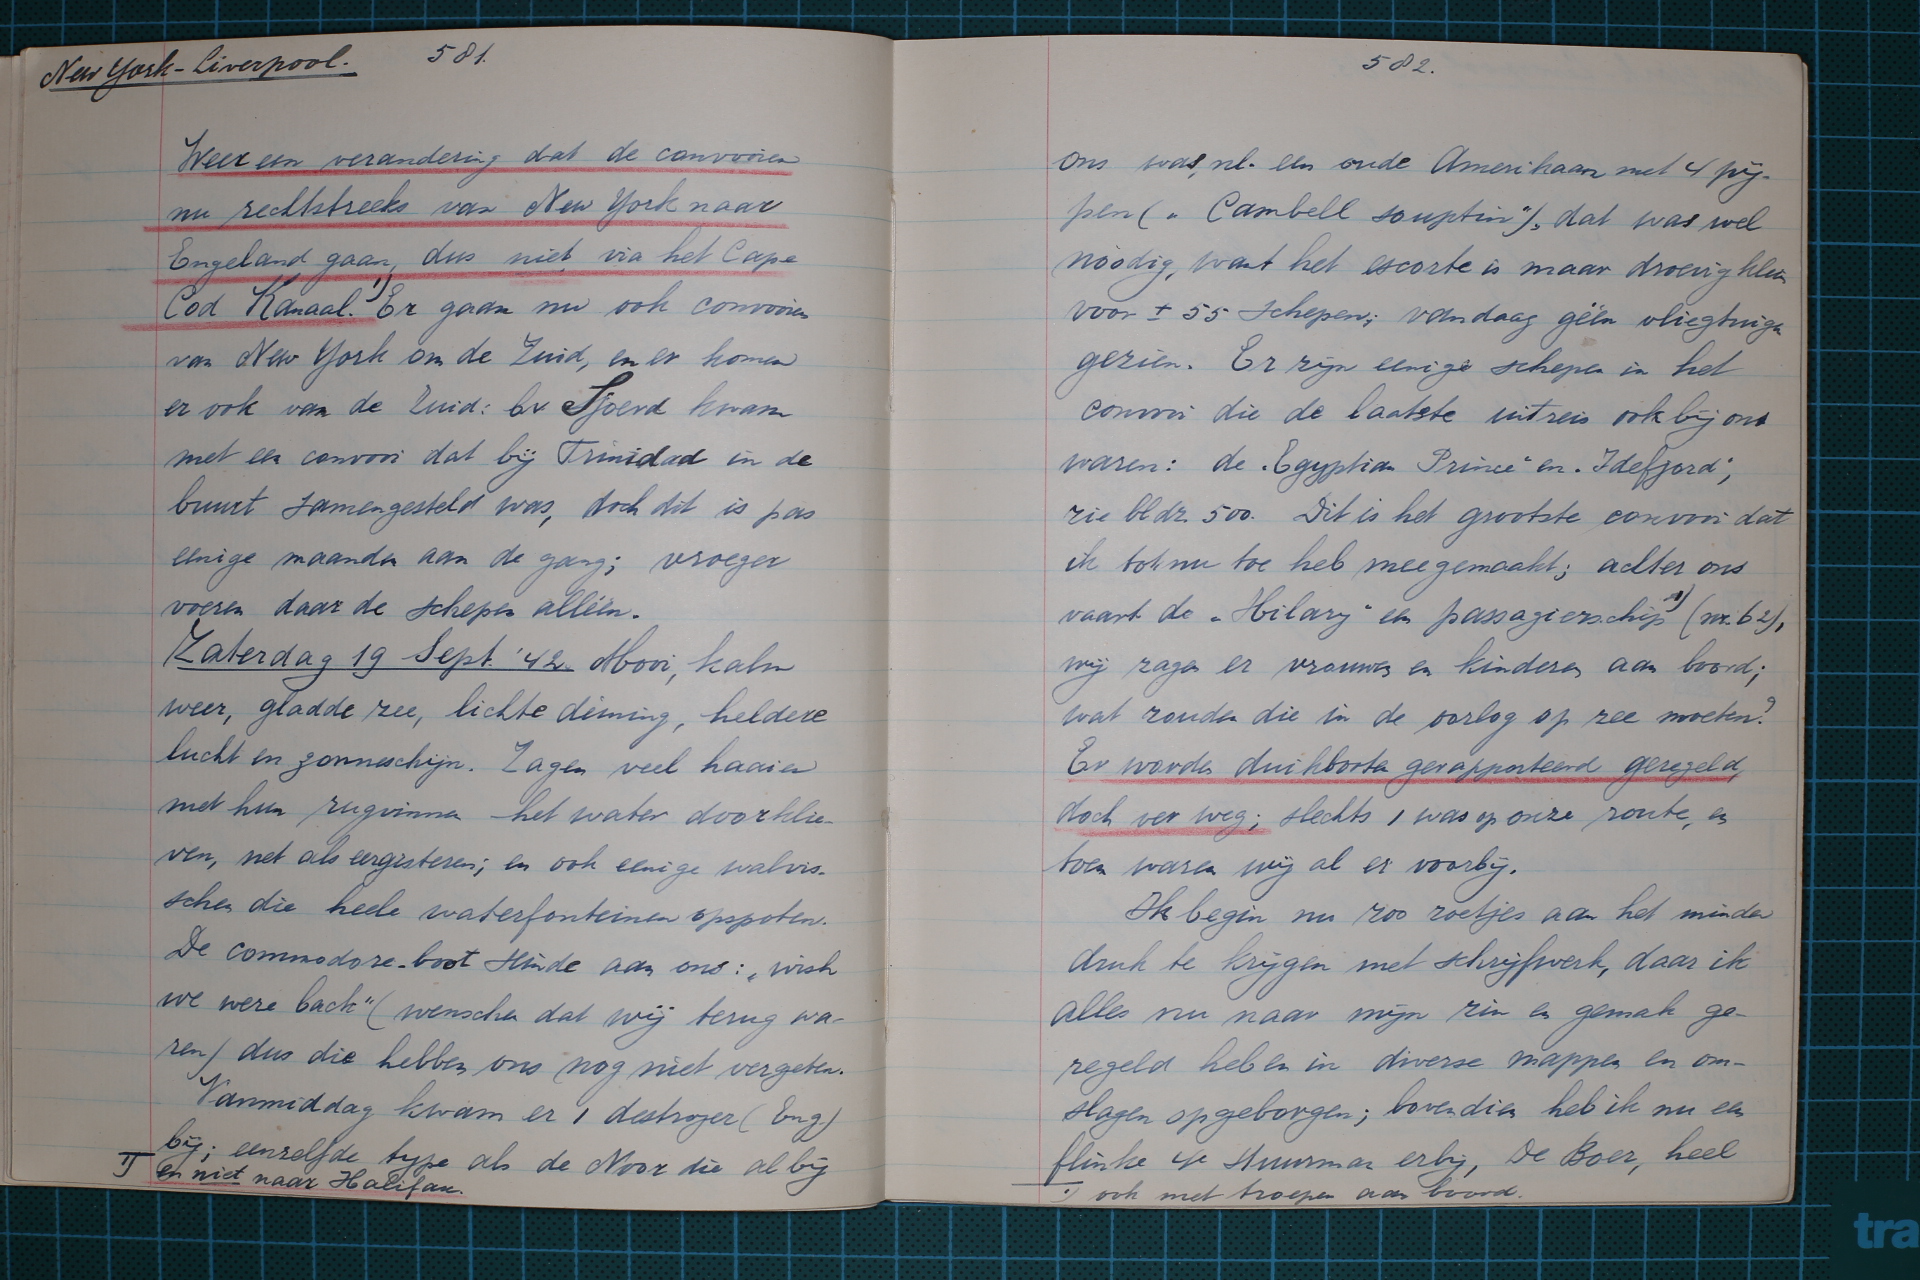 New York - Liverpool. 581.
Weer een verandering dat de convooien
nu rechtstreeks van New York naar
Engeland gaan, dus niet via het Cape
Cod Kanaal. 1) Er gaan nu ook convooien
van New York om de Zuid, en er komen
er ook van de Zuid: bv Sjoerd kwam
met een convooi dat bij Trinidad in de
buurt samengesteld was, doch dit is pas
eenige maanden aan de gang; vroeger
voeren daar de schepen alléén.
Zaterdag 19 Sept. '42. Mooi, kalm
weer, gladde zee, lichte deining, heldere
lucht en zonneschijn. Zagen veel haaien
met hun rugvinnen het water doorklie-
ven, net als eergisteren; en ook eenige walvis-
schen die heele waterfonteinen opspoten.
De commodore-boot seinde aan ons: „wish
we were back" (wenschen dat wij terug wa-
ren) dus die hebben ons nog niet vergeten.
Vanmiddag kwam er 1 destroyer (Eng)
bij; eenzelfde type als de Noor die al bij
1) en niet naar Halifax.
582.
ons was, nl. een oude Amerikaan met 4 pij-
pen („Cambell souptin"), dat was wel
noodig, want het escorte is maar droevig klein
voor ± 55 schepen; vandaag géén vliegtuigen
gezien. Er zijn eenige schepen in het
convooi die de laatste uitreis ook bij ons
waren: de „Egyptian Prince" en „Idefjord",
zie bldz. 500. Dit is het grootste convooi dat
ik tot nu toe heb meegemaakt; achter ons
vaart de „Hilary" een passagierschip 1) (nr. 62),
wij zagen er vrouwen en kinderen aan boord;
wat zouden die in de oorlog op zee moeten?
Er worden duikboten gerapporteerd geregeld,
doch ver weg; slechts 1 was op onze route, en
toen waren wij al er voorbij.
Ik begin nu zoo zoetjes aan het minder
druk te krijgen met schrijfwerk, daar ik
alles nu naar mijn zin en gemak ge-
regeld heb en in diverse mappen en om-
slagen opgeborgen; bovendien heb ik nu een
flinke 4e stuurman erbij, De Boer, heel
1) ook met troepen aan boord.
tra